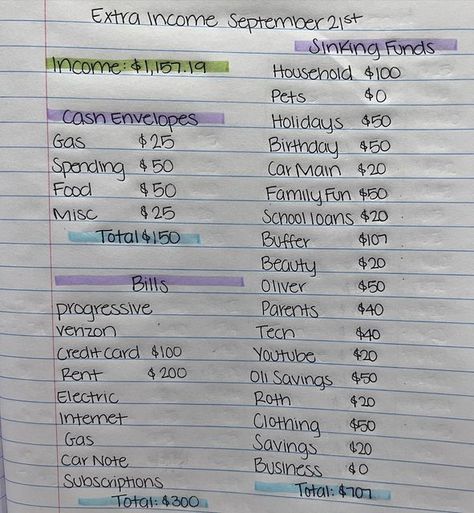 Extra Income September 21st
Income: $1,157.19
Cash Envelopes
Gas $25
Spending $50
Food $50
Misc $25
Total $150
Bills
progressive
verizon
Credit Card $100
Rent $200
Electric
Internet
Gas
Car Note
Subscriptions
Total: $300
Sinking Funds
Household $100
Pets $0
Holidays $50
Birthday $50
Car Main $20
Family Fun $50
School loans $20
Buffer $107
Beauty $20
Oliver $50
Parents $40
Tech $40
Youtube $20
Oli Savings $50
Roth $20
Clothing $50
Savings $20
Business $0
Total: $707